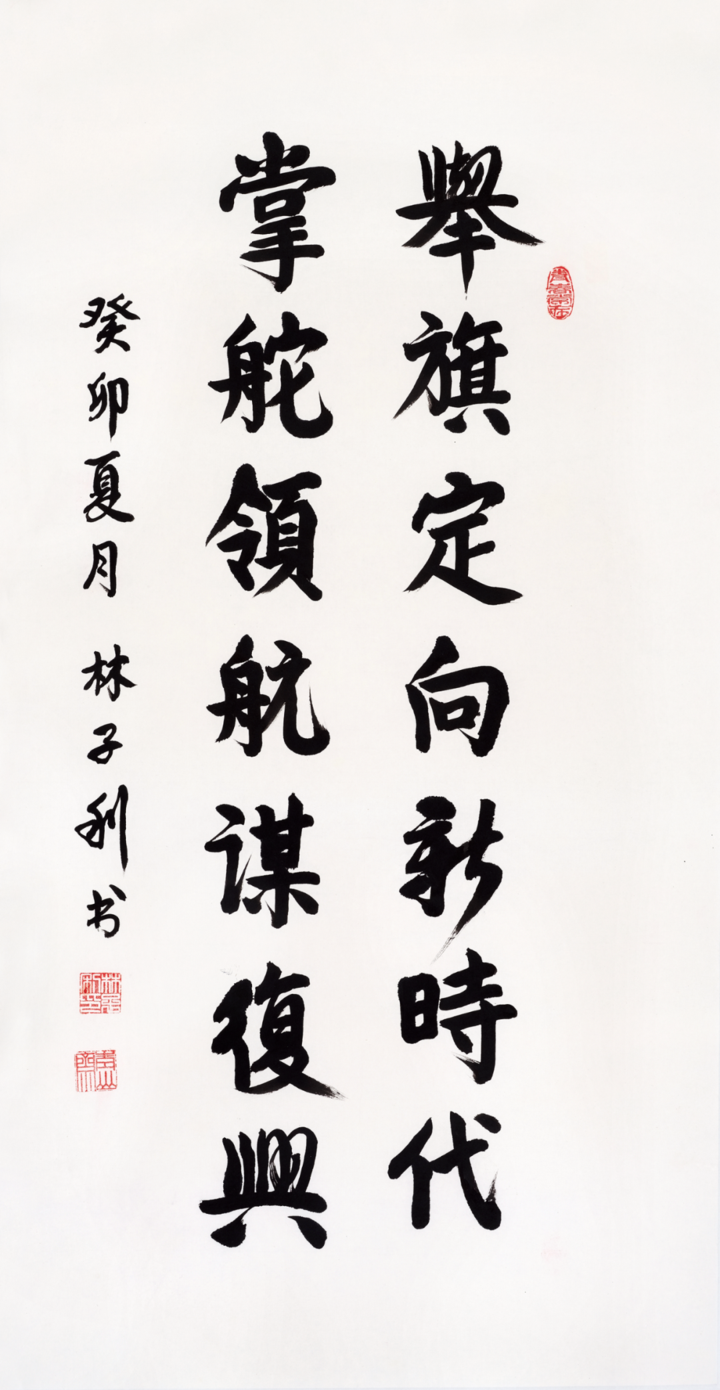 舉旗定向新時代
掌舵領航謀復興
癸卯夏月 林子利书